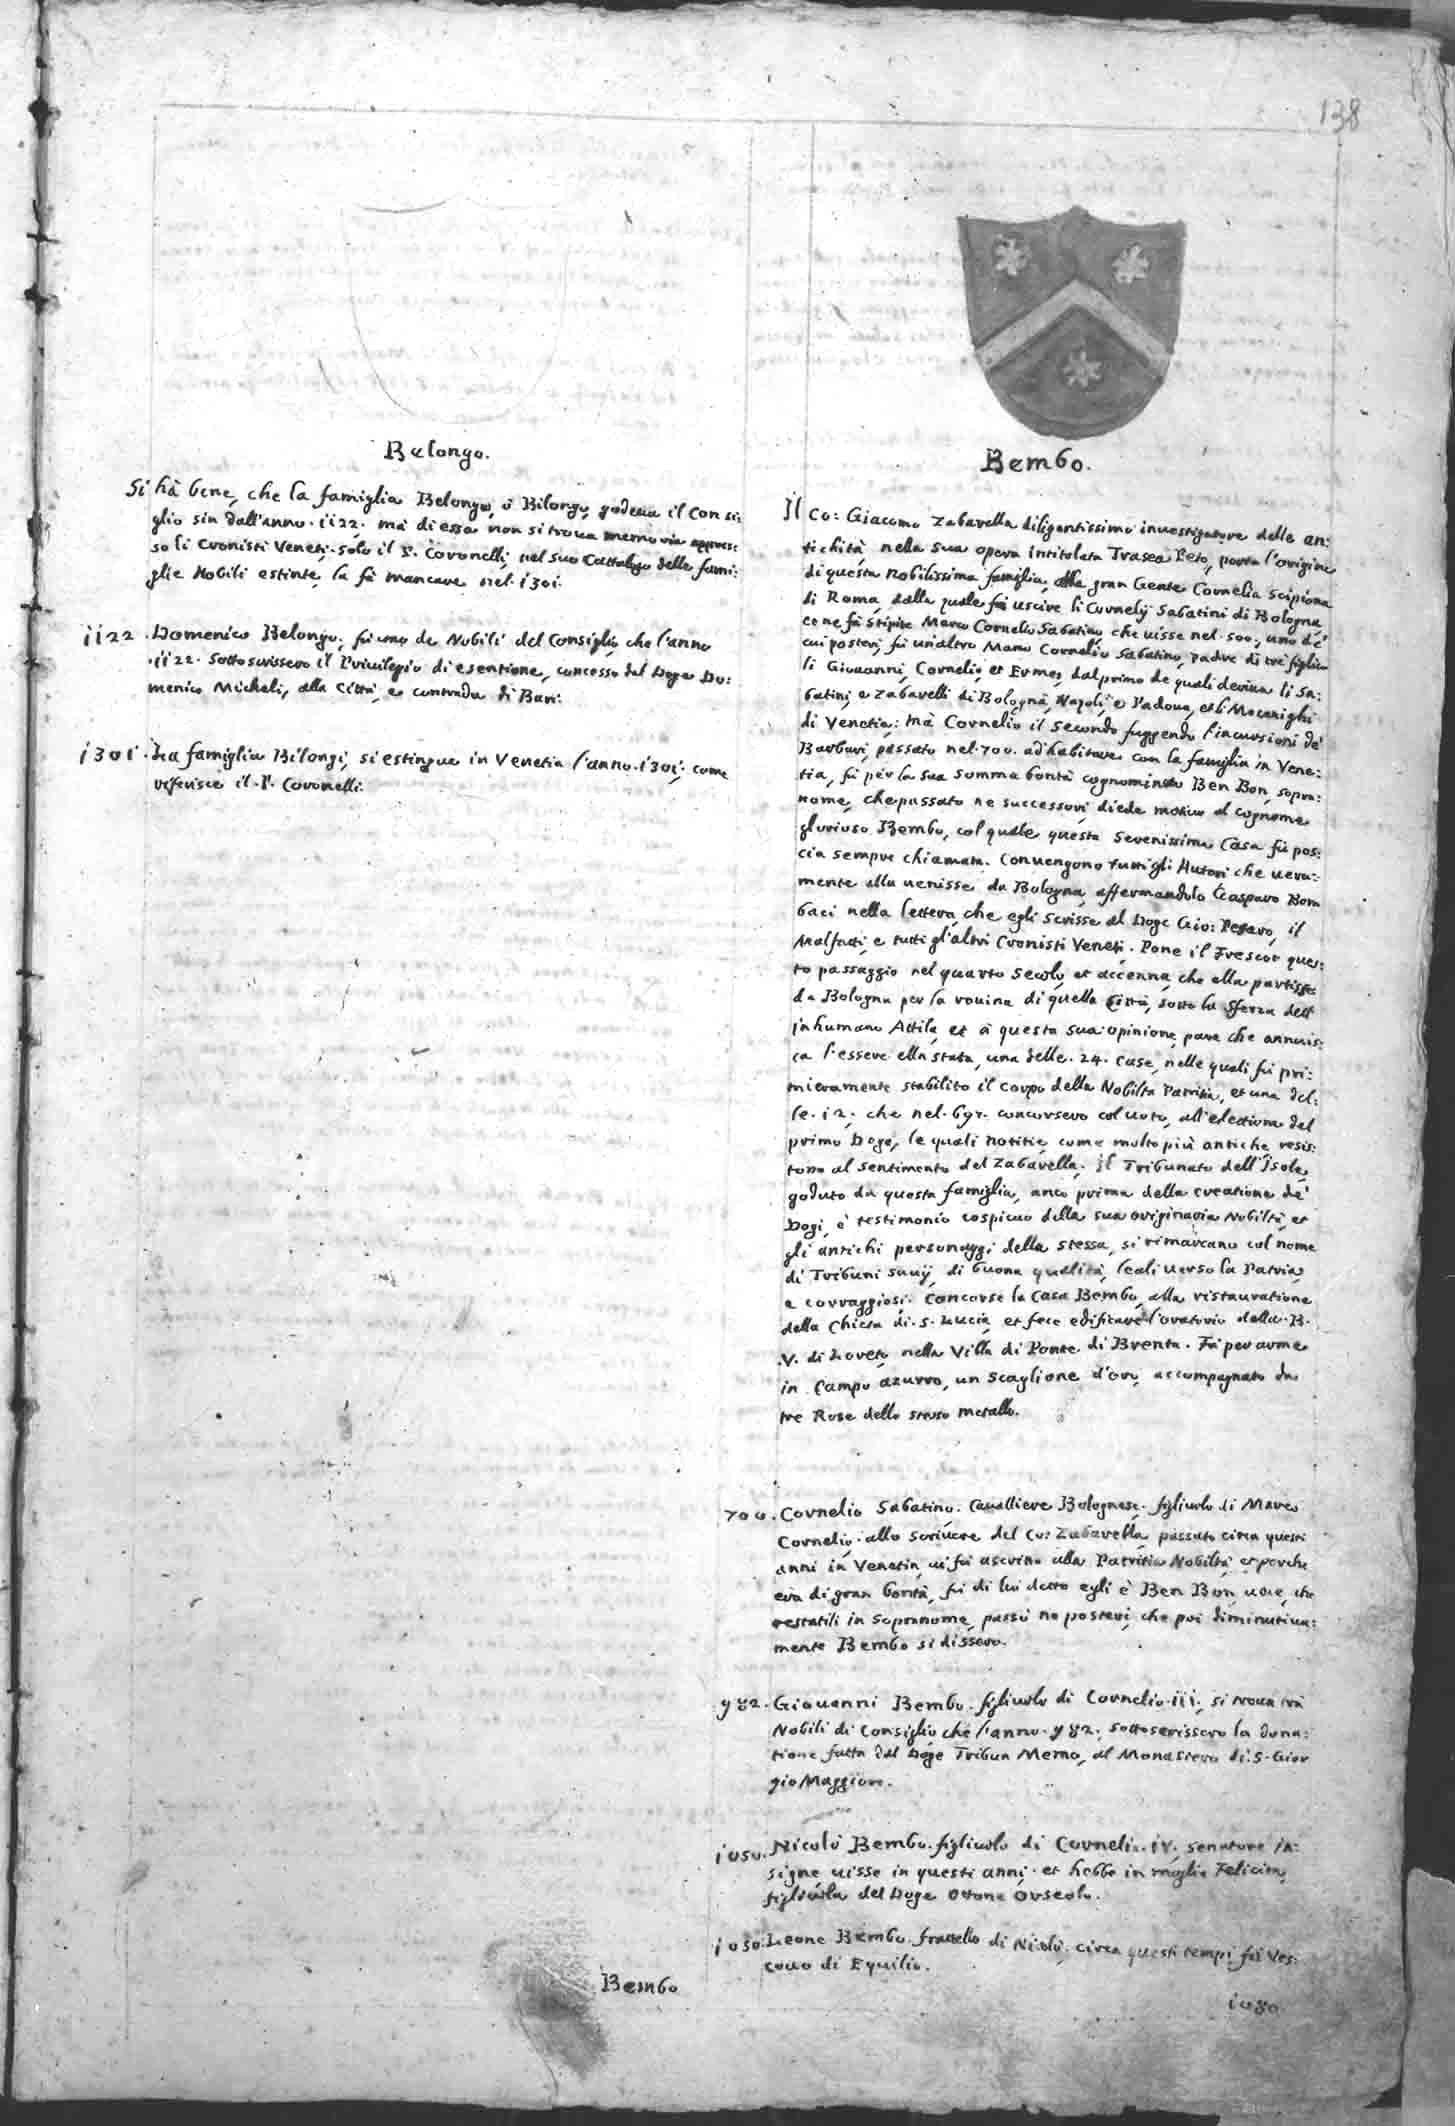 138
Belongo.
Si hà bene, che la famiglia Belongo, ò Bilongo, godeua il Consi:
glio sin dall'anno .1122. mà di essa non si troua memoria appres:
so li Cronisti Veneti. solo il P. Coronelli, nel suo Cattalogo delle fami:
glie Nobili estinte, la fà mancare nel .1301.
1122. Domenico Belongo, fù uno de Nobili del Consiglio che l'anno
.1122. sottoscrissero il Priuilegio di esentione, concesso dal Doge Do:
menico Micheli, alla Città, e contrada di Bari.
1301. La famiglia Bilongi, si estingue in Venetia l'anno .1301. come
riferisce il P. Coronelli.
Bembo
Bembo.
Il Co: Giacomo Zabarella diligentissimo inuestigatore delle an:
tichità, nella sua opera intitolata Trasea Peto, porta l'origine
di questa Nobilissima famiglia, alla gran Gente Cornelia Scipiona
di Roma, dalla quale fà uscire li Cornelij Sabatini di Bologna
e ne fà stipite Marco Cornelio Sabatino, che uisse nel .500., uno de'
cui posteri, fù un'altro Marco Cornelio Sabatino, padre di trè figlij
li Giouanni, Cornelio, et Ermes, dal primo de quali deriua li Sa:
batini, e Zabarelli di Bologna, Napoli, e Padoua, et li Mocenighi
di Venetia: mà Cornelio il secondo fuggendo l'incursioni de'
Barbari, passato nel .700. ad habitare con la famiglia in Vene:
tia, fù per la sua somma bontà cognominato Ben Bon, sopra:
nome, che passato ne successori, diede motiuo al cognome
glorioso Bembo, col quale questa Serenissima Casa fù pos:
cia sempre chiamata. Conuengono tutti gli Autori che uera:
mente ella uenisse da Bologna, affermandolo Gasparo Bom
baci nella lettera, che egli scrisse al Doge Gio: Pesaro, il
Malfatti, e tutti gl'altri Cronisti Veneti. Pone il Frescot ques:
to passaggio nel quarto secolo, et accenna, che ella partisse
da Bologna per la rouina di quella Città, sotto la sferza dell'
inhumano Attila, et à questa sua opinione, pare che annuis:
ca l'essere ella stata, una delle .24. Case, nelle quali fù pri:
mieramente stabilito il corpo della Nobiltà Patritia, et una del:
le .12. che nel .697. concorsero col uoto, all'elettione del
primo Doge, le quali notitie, come molto più antiche resis:
tono al sentimento del Zabarella. Il Tribunato dell'Isole,
goduto da questa famiglia, anco prima della creatione de'
Dogi, è testimonio cospicuo della sua originaria Nobiltà, et
gli antichi personaggi della stessa, si rimarcano col nome
di Tribuni sauij, di buona qualità, leali uerso la Patria,
e corraggiosi. Concorse la Casa Bembo, alla ristauratione
della Chiesa di .S. Lucia, et fece edificare l'oratorio della .B.
.V. di Loreto, nella Villa di Ponte di Brenta. Fà per arme
in Campo azurro, un scaglione d'oro, accompagnato da
tre Rose dello stesso metallo.
700. Cornelio Sabatino. Caualliere Bolognese. figliuolo di Marco
Cornelio. allo scriuere del Co: Zabarella, passato circa questi
anni in Venetia, ui fù ascritto alla Patritia Nobiltà, et perche
era di gran bontà, fù di lui detto egli è Ben Bon, uoce, che
restatili in sopranome, passò ne posteri, che poi diminutiua:
mente Bembo si dissero.
982. Giouanni Bembo. figliuolo di Cornelio .III. si troua trà
Nobili di Consiglio che l'anno .982. sottoscrissero la dona:
tione fatta dal Doge Tribun Memo, al Monastero di .S. Gior
gio Maggiore.
1050. Nicolò Bembo. figliuolo di Cornelio .IV. senatore in:
signe uisse in questi anni. et hebbe in moglie Felicita,
figliuola del Doge Ottone Orseolo.
1050. Leone Bembo. fratello di Nicolò, circa questi tempi fù Ves:
couo di Equilio.
1080